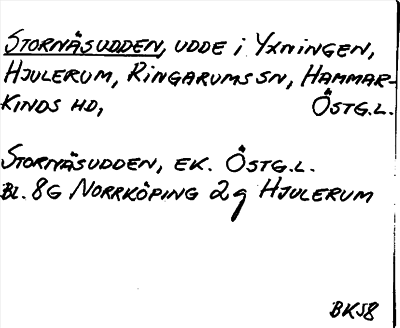 STORNÄSUDDEN, UDDE i YXNINGEN,
HJULERUM, RINGARUMS SN, HAMMAR-
KINDS HD, ÖSTG.L.
STORNÄSUDDEN, EK. ÖSTG.L.
BL. 8G NORRKÖPING 2g HJULERUM
BKJ8